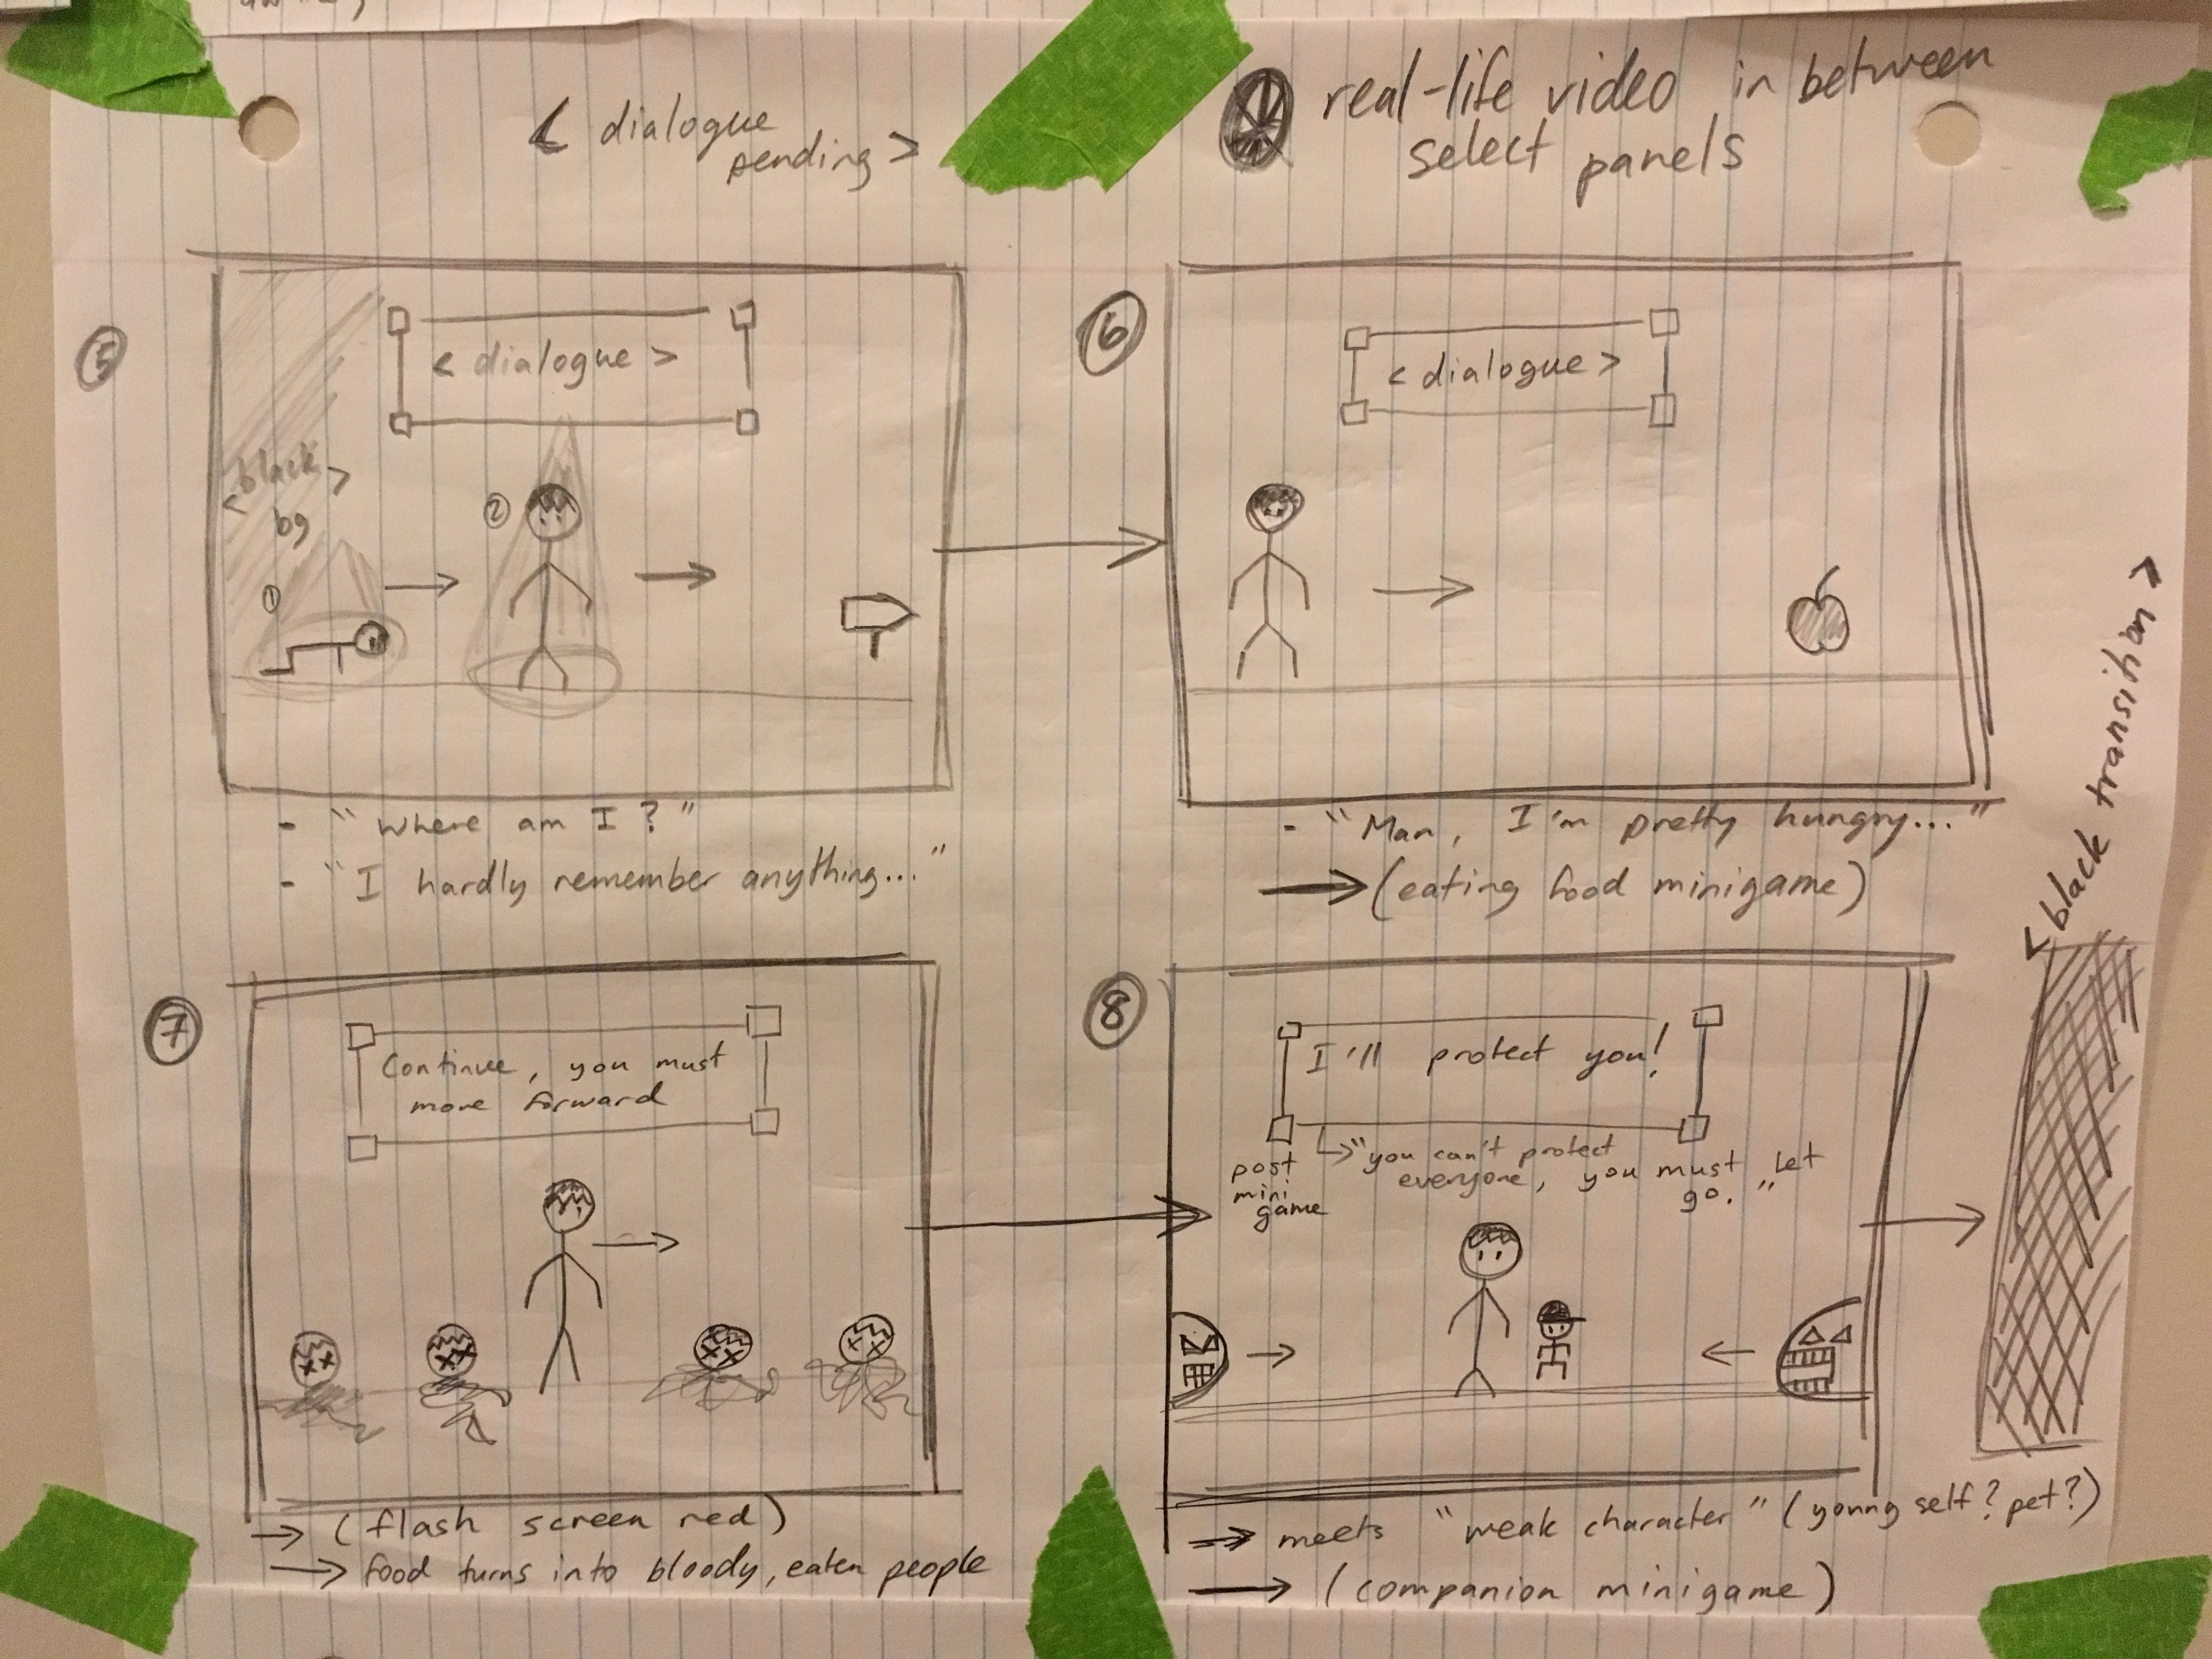 < dialogue
pending >
real-life video in between
select panels
5
< dialogue >
<black>
bg
1
2
- "Where am I?"
- "I hardly remember anything..."
6
< dialogue >
- "Man, I'm pretty hungry..."
(eating food minigame)
7
Continue, you must
move forward
(flash screen red)
food turns into bloody, eaten people
8
I'll protect you!
post
mini
game
"you can't protect
everyone, you must let
go."
meets "weak character" (young self? pet?)
(companion minigame)
<black transition>